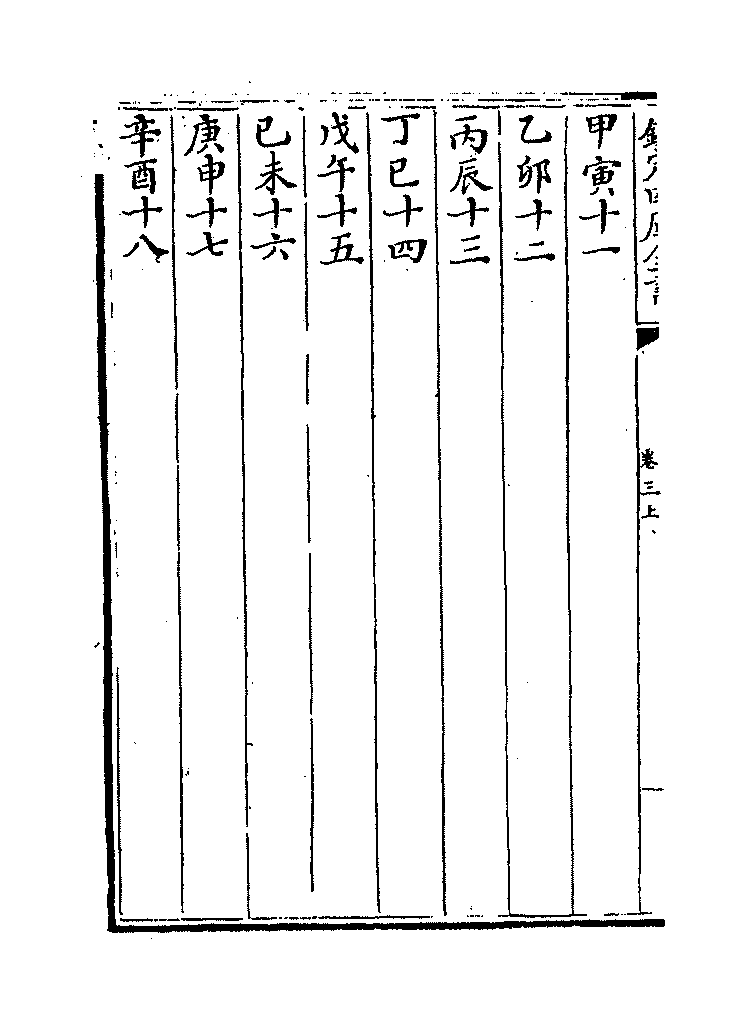 欽定四庫全書
卷三上
甲寅十一
乙卯十二
丙辰十三
丁巳十四
戊午十五
已未十六
庚申十七
辛酉十八